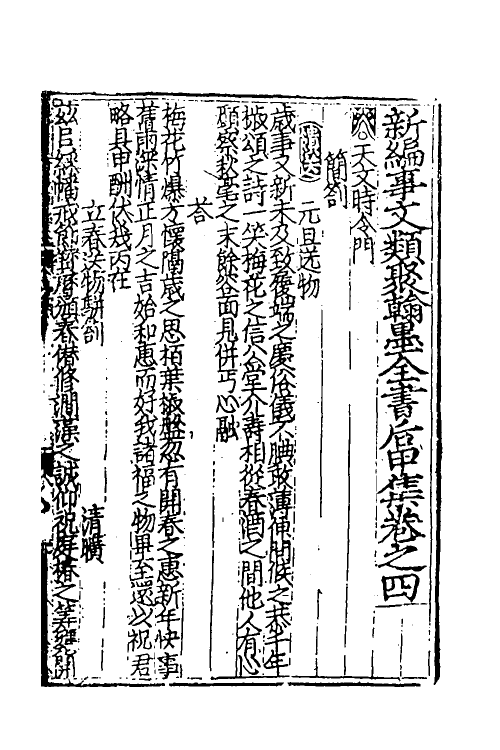 新編事文類聚翰墨全書后甲集卷之四
天文時令門
簡劄
元旦送物
歲事又新未及致履端之慶俗儀不腆敢薄伸明候之恭千年
椒頌之詩一笑梅花之信公堂介壽相從春酒之間他人有心
願察秋毫之末餘容面見併丐心融
答
梅花竹爆方懷隔歲之思栢葉椒盤忽有開春之惠新年快事
舊雨深情正月之吉始和惠而好我諸福之物畢至還以祝君
略具申酬伏幾丙在
立春送物駢劄 清曠
玆臣綵幡戒節
春僣修澗藻之誠仰祝庭椿之筭